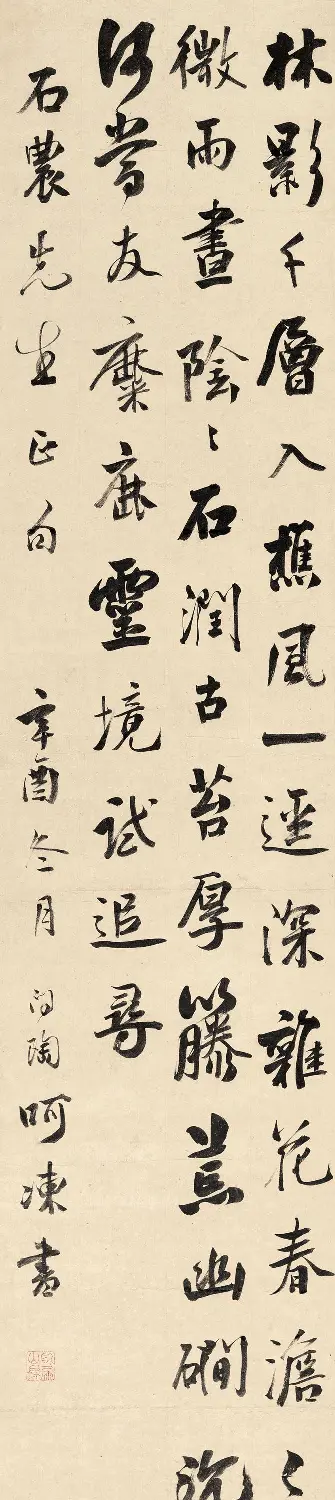 林影千層入樵風一逕深雜花春澹〻
微雨晝陰〻石潤古苔厚籐荒幽磵沉
何當友麋鹿靈境試追尋
石農先生正句 辛酉冬月 問陶呵凍書